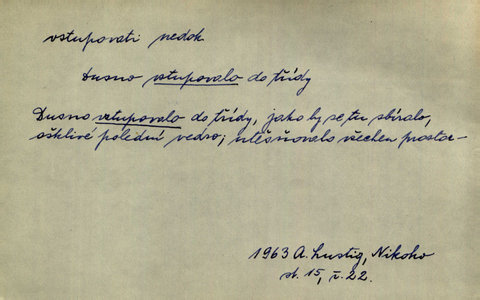 vstupovati nedok.
Dusno vstupovalo do třídy
Dusno vstupovalo do třídy, jako by se tu sbíralo,
ošklivé polední vedro; utěsňovalo všechen prostor –
1963 A. Lustig, Nikoho
st. 15, ř. 22.